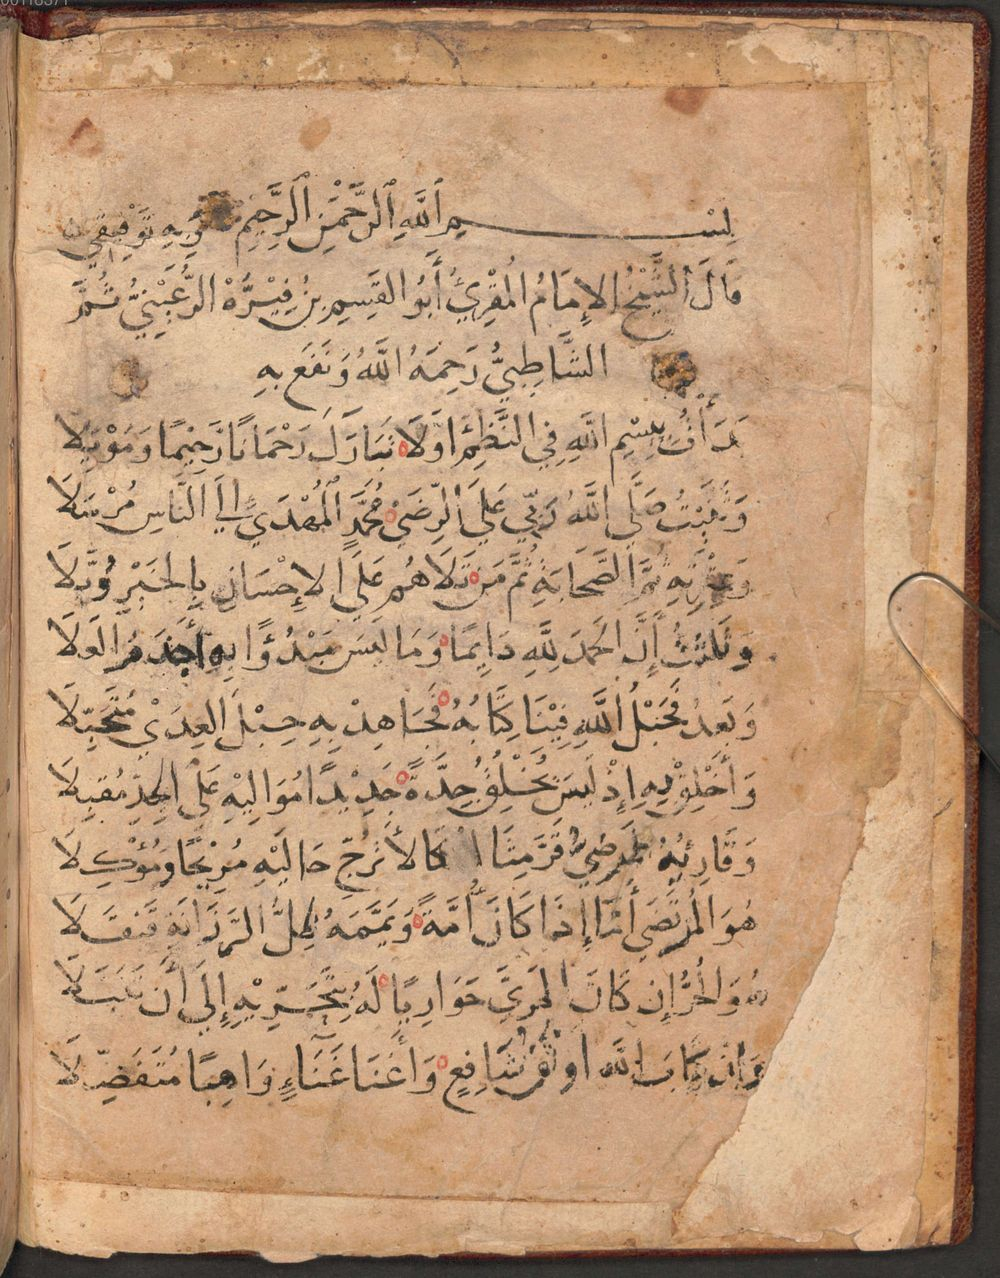 بِسْمِ ٱللَّهِ ٱلرَّحْمٰنِ ٱلرَّحِيمِ وَبِهِ تَوْفِيقِي
قَالَ الشَّيْخُ الإِمَامُ المُقْرِئُ أَبُو القَسِمِ بنُ فِيْرُّهْ الرُّعَيْنِيُّ ثُمَّ
الشَّاطِبِيُّ رَحِمَهُ اللَّهُ وَنَفَعَ بِهِ
بَدَأْتُ بِبِسْمِ اللَّهِ فِي النَّظْمِ أَوَّلَا تَبَارَكَ رَحْمَانًا رَحِيمًا وَمَوْئِلَا
وَثَنَّيْتُ صَلَّى اللَّهُ رَبِّي عَلَى الرِّضَى مُحَمَّدٍ المُهْدَى إِلَى النَّاسِ مُرْسَلَا
وَعِتْرَتِهِ ثُمَّ الصَّحَابَةِ ثُمَّ مَن تَلَاهُم عَلَى الإِحْسَانِ بِالخَيْرِ وُبَّلَا
وَثَلَّثْتُ أَنَّ الحَمدَ لِلَّهِ دَايِمًا وَمَا لَيسَ مَبْدُوًا بِهِ أَجْذَمُ العَلَا
وَبَعدُ فَحَبْلُ اللَّهِ فِيْنَا كِتَابُهُ فَجَاهِدْ بِهِ حِبْلَ العِدَى مُتَحَبِّلَا
وَأَخْلِقْ بِهِ إِذْ لَيسَ يَخْلُقُ جِدَّةً جَدِيْدًا مُوَالِيْهِ عَلَى الجِدِّ مُقبِلَا
وَقَارِئُهُ المَرضِيُّ قَرَّ مِثَالُهُ كَالأُتْرُجِّ حَالَيْهِ مُرِيْحًا وَمُؤْكِلَا
هُوَ المُرْتَضَى أَمًّا إِذَا كَانَ أُمَّةً وَيَمَّمَهُ ظِلُّ الرَّزَانَةِ قَنقَلَا
هُوَ الحُرُّ إِن كَانَ الحَرِيَّ حَوَارِيًا لَهُ بِتَحَرِّيْهِ إِلَى أَن تَنَبَّلَا
وَإِنَّ كِتَابَ اللَّهِ أَوثَقُ شَافِعٍ وَأَغنَا غَنَاءٍ وَاهِبًا مُتَفَضِّلَا